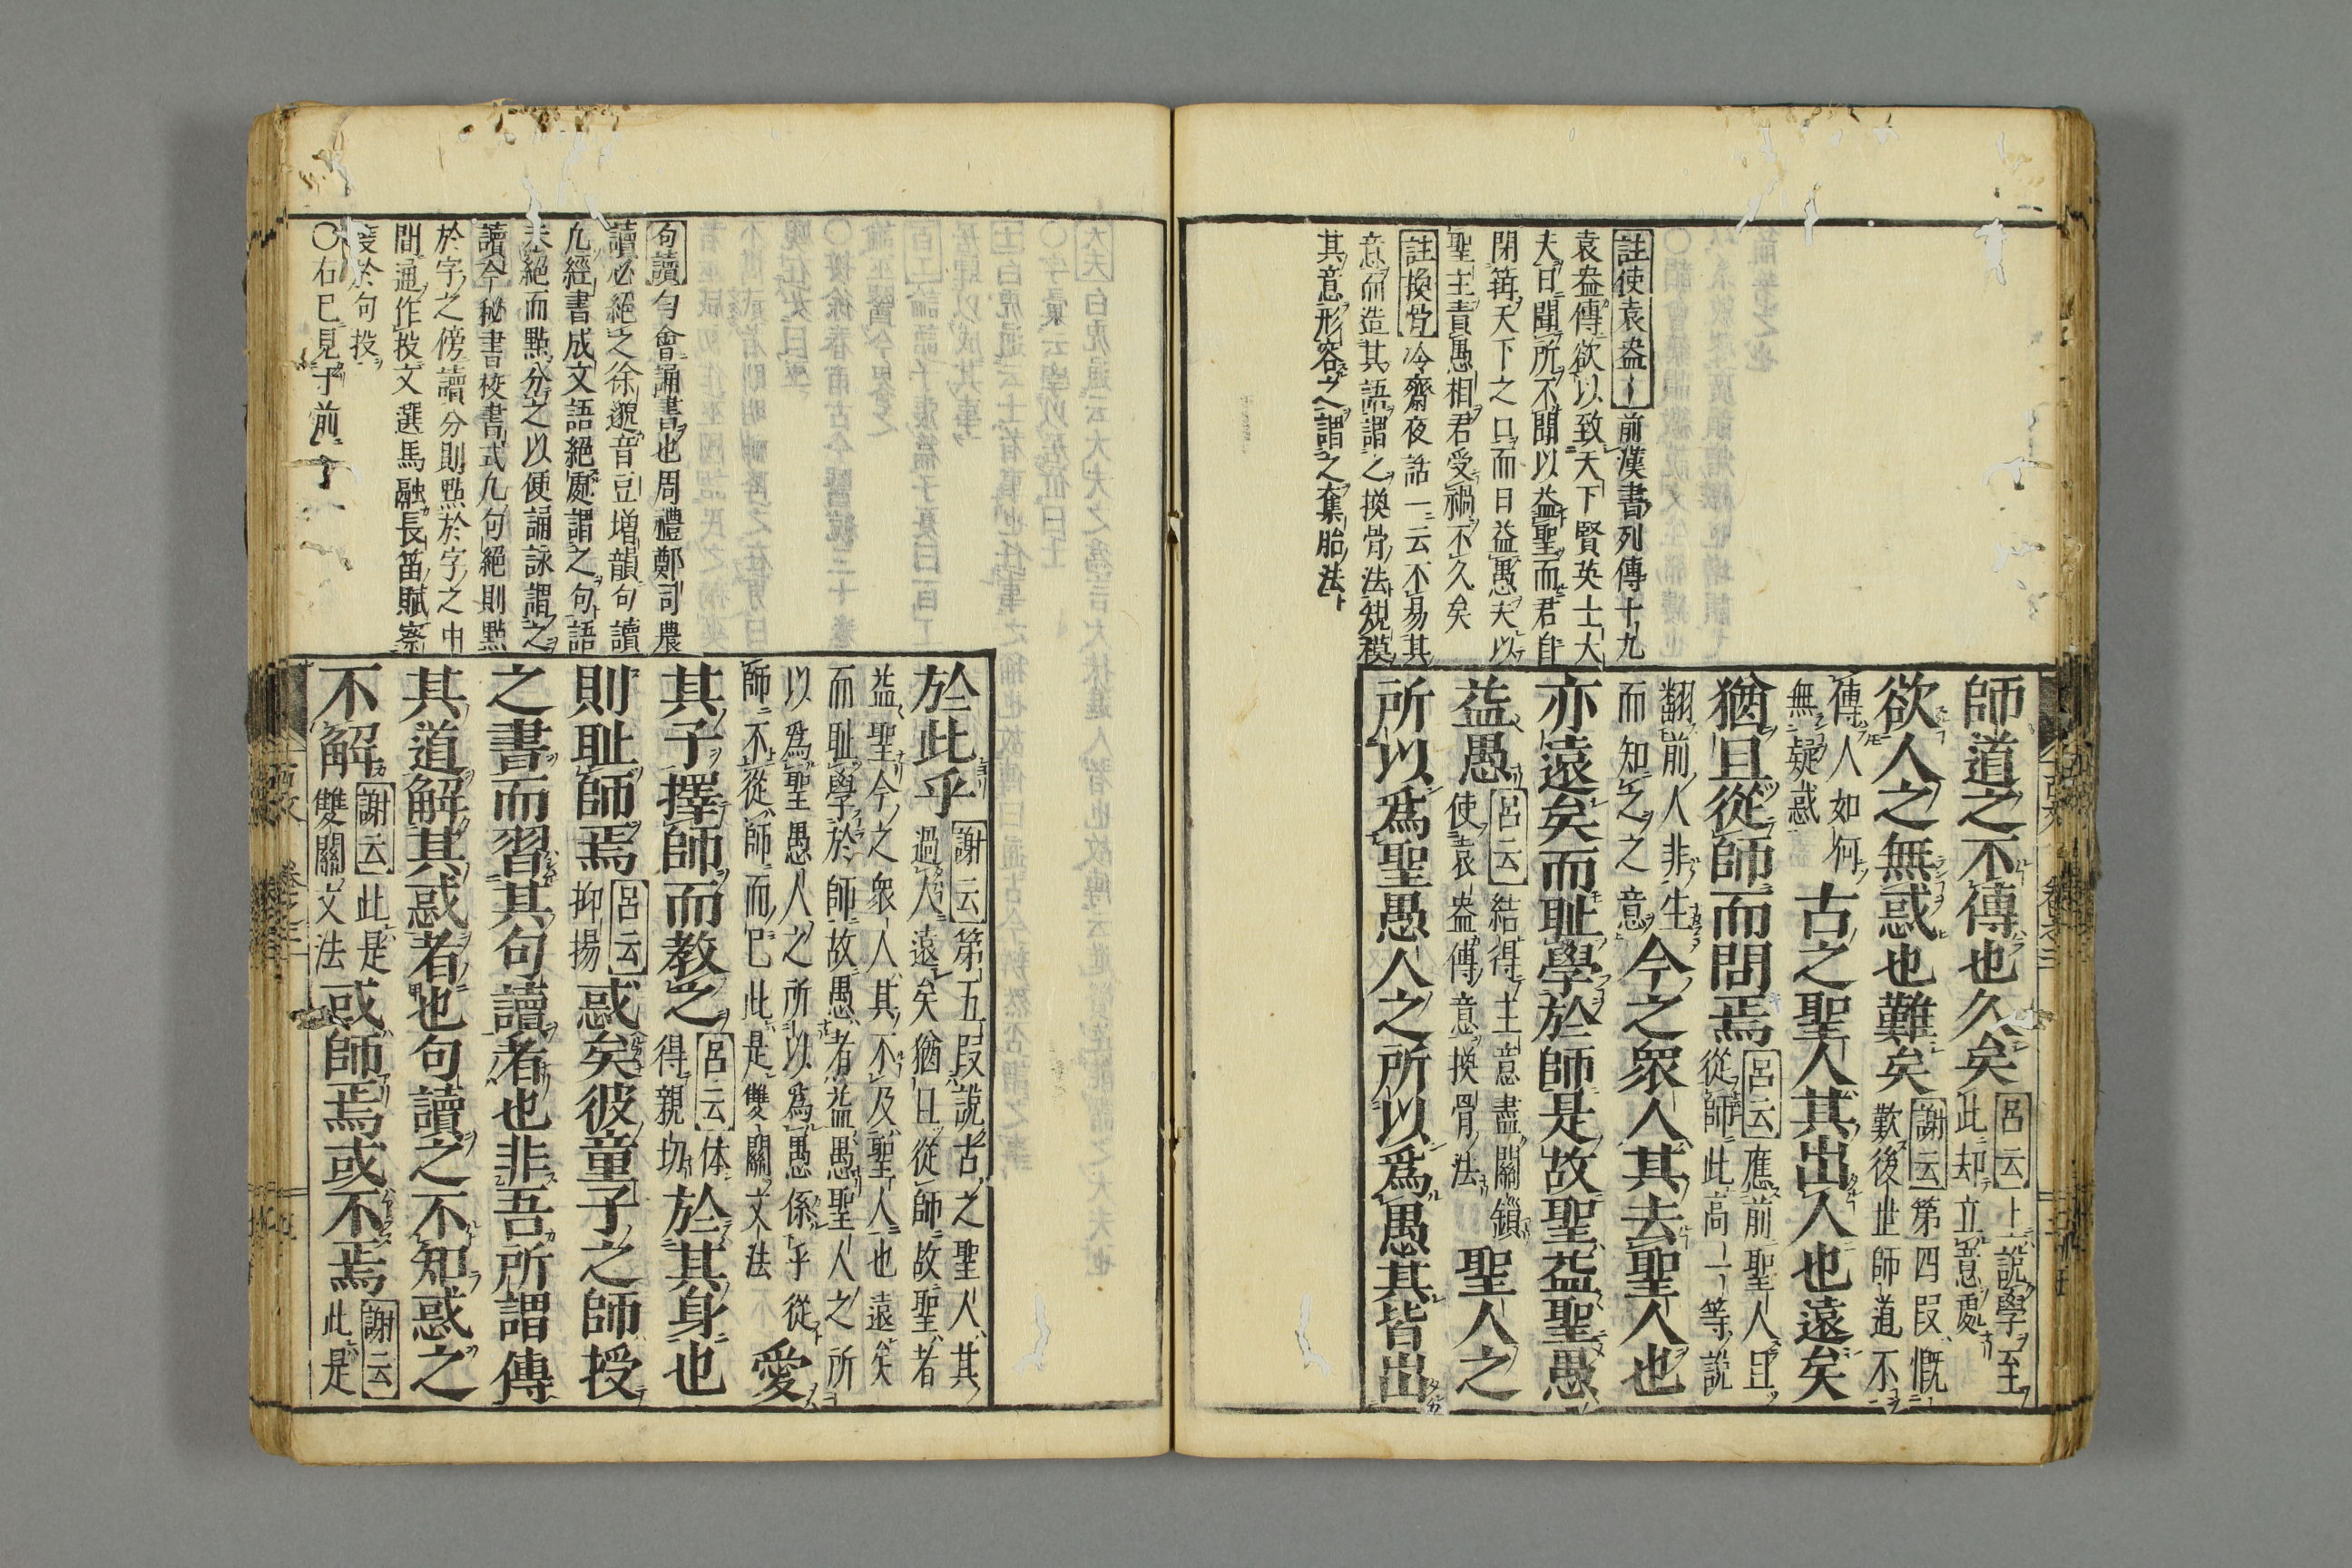 註使袁盎｜前漢書列傳十九
袁盎傳欲以致天下賢英士大
夫日聞所不聞以益聖而君自
閉箝天下之口而日益愚夫以
聖主責愚相君受禍不久矣
註換骨冷齋夜話一云不易其
意而造其語謂之換骨法規模
其意形容之謂之奪胎法
師道之不傳也久矣呂云上説學至
此却立意處
欲人之無惑也難矣謝云第四段慨
歎後世師道不
傳人如何
無疑惑
古之聖人其出人也遠矣
猶且從師而問焉呂云應前聖人且
從師此高一等説
翻前人非生
而知之之意
今之衆人其去聖人也
亦遠矣而耻學於師是故聖益聖愚
益愚呂云結得主意盡關鎖
使袁盎傳意換骨法
聖人之
所以爲聖愚人之所以爲愚其皆出
句讀句會誦書也周禮鄭司農
讀必絕之徐邈音豆增韻句讀
凡經書成文語絕處謂之句語
未絕而點分之以便誦詠謂之
讀今秘書校書式凡句絕則點
於字之傍讀分則點於字之中
間通作投文選馬融長笛賦察
於句投
〇右已見于前
於此乎謝云第五段説古之聖人其
過人遠矣猶且從師故聖者
益聖今之衆人其不及聖人也遠矣
而耻學於師故愚者益愚聖人之所
以爲聖愚人之所以爲愚係乎從
師不從師而已此是雙關文法
愛
其子擇師而教之呂云体
得親切
於其身也
則耻師焉呂云
抑揚
惑矣彼童子之師授
之書而習其句讀者也非吾所謂傳
其道解其惑者也句讀之不知惑之
不解謝云此是
雙關文法
或師焉或不焉謝云
此是